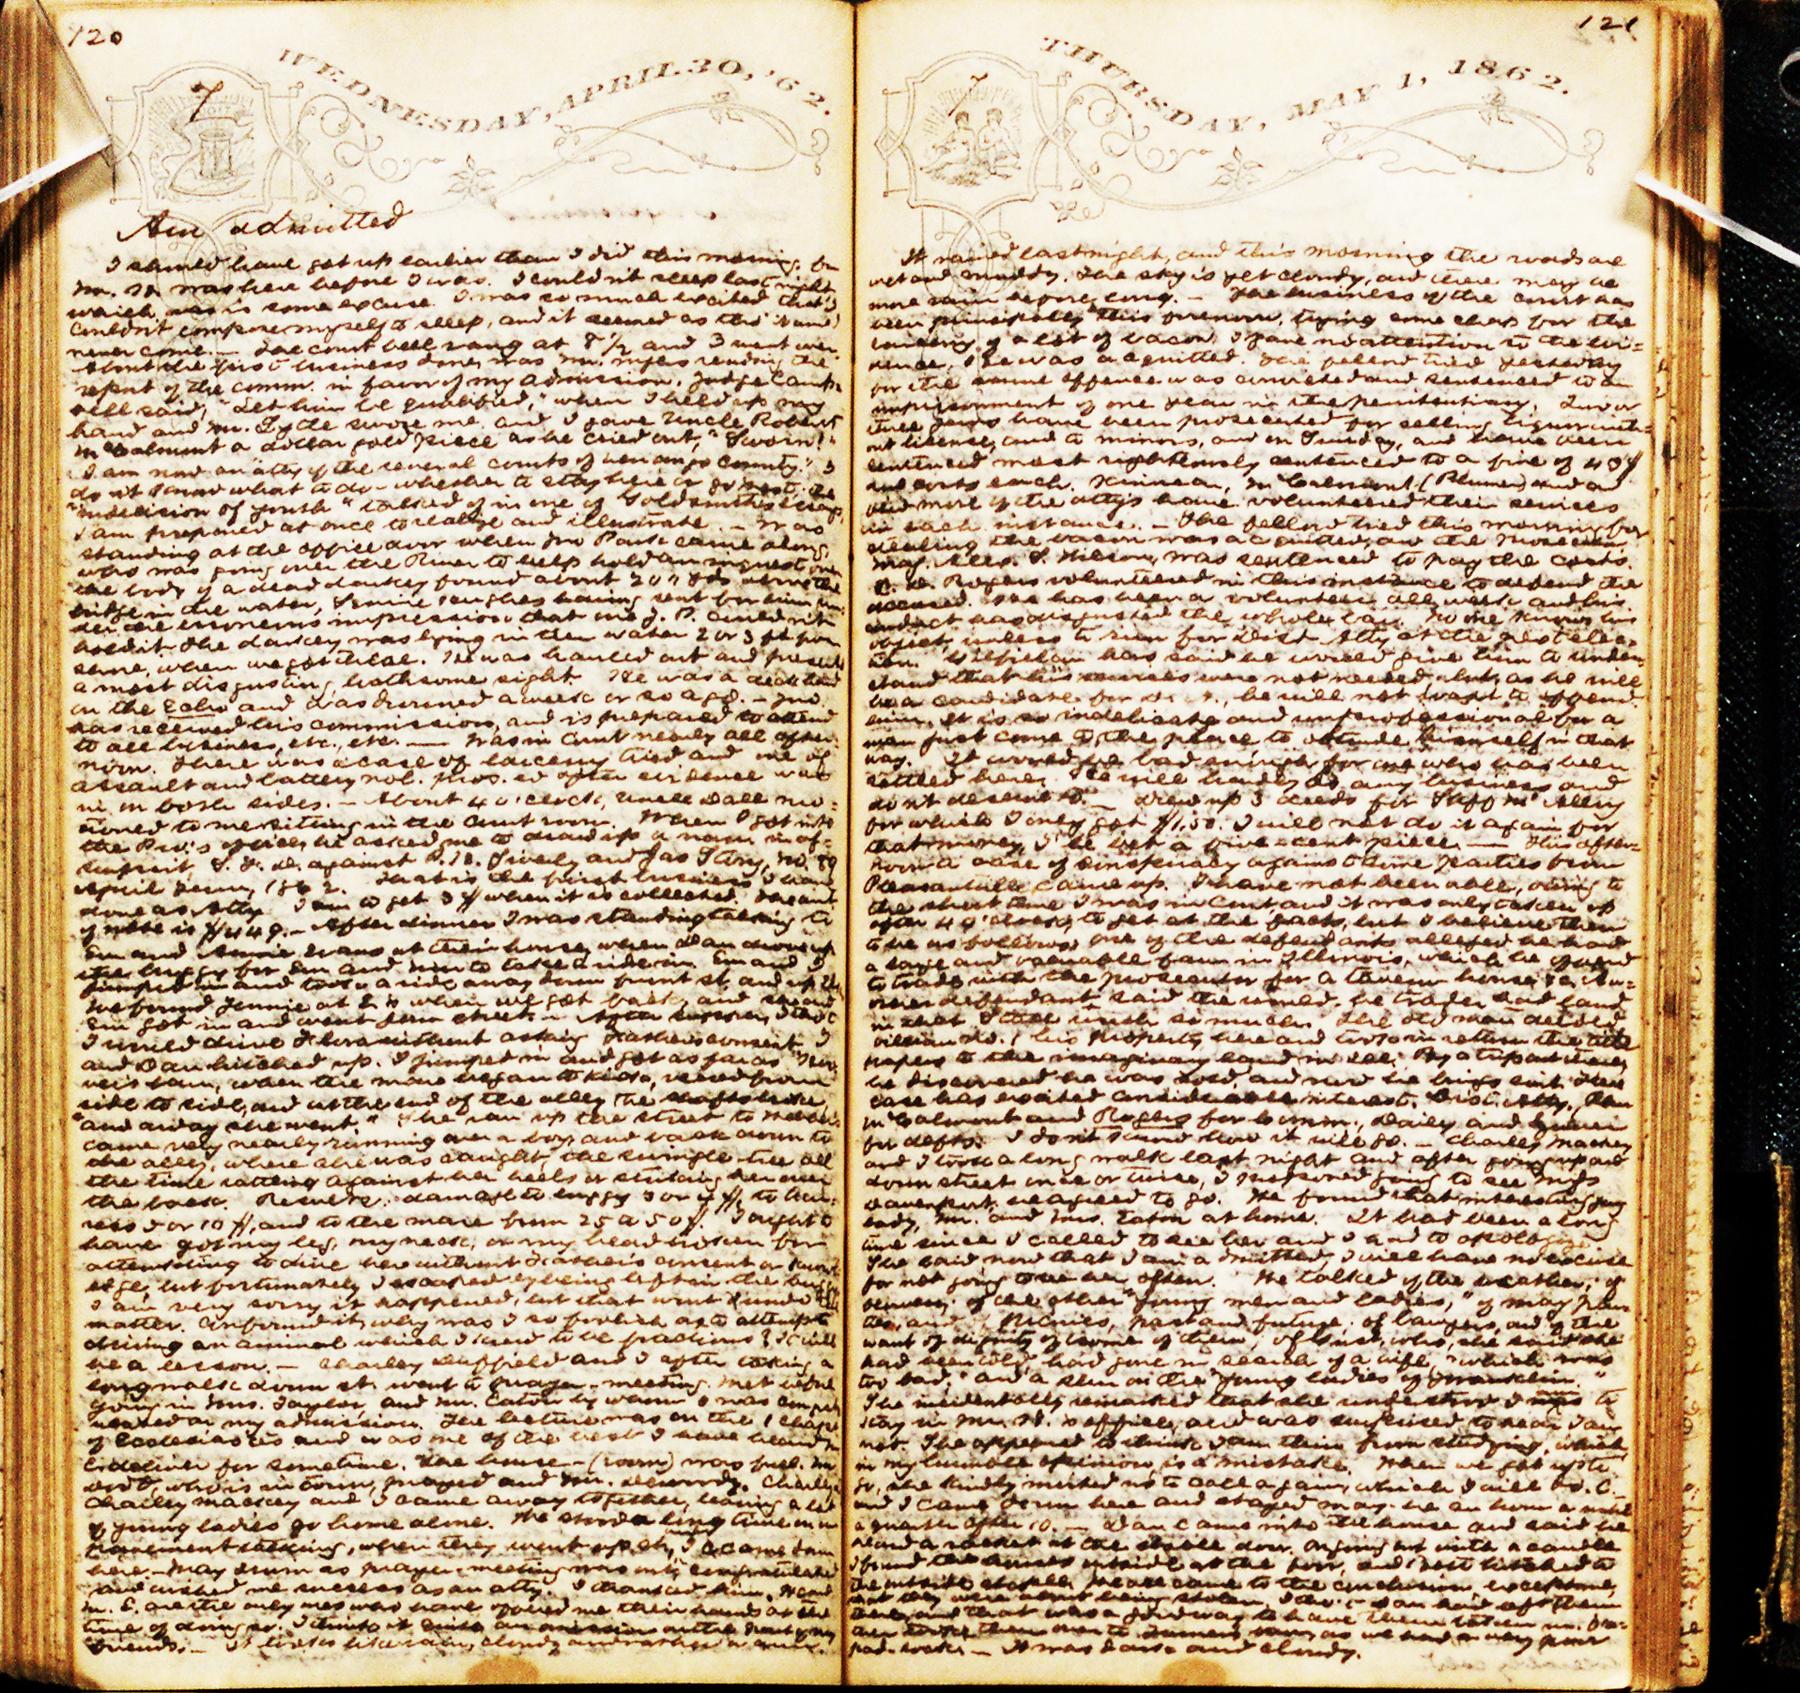 120
WEDNESDAY, APRIL 30, '62.
7
Am admitted
I should have got up earlier than I did this morning, for
Mr. H. was here before I was. I couldn't sleep last night
which was is some excuse. I was so much excited that I
couldn't compose myself to sleep, and it seemed as tho' it would
never come. — The court bell rang at 8 1/2 and I went over.
About the first business done, was Mr. reading the
report of the comm. in favor of my admission. Judge Camp-
bell said, "Let him be qualified," when I held up my
hand and Mr. Lytle swore me and I gave Uncle Robert
McCalmont a dollar gold piece as he cried out, "Sworn!"
I am now an att'y of the several courts of Venango County." I
don't know what to do — whether to stay here or go West. The
"indecision of youth" talked of in one of Goldsmith's essays,
I am prepared at once to realize and illustrate. — Was
standing at the office door when Jno Park came along,
who was going over the River to help hold an inquest over
the body of a dead darkey found about 200 yds above the
bridge in the water, having sent for him un-
der the erroneous impression that one J. P. couldn't
hold it. The darkey was lying in the water 2 or 3 ft from
shore, when we got there. He was hauled out and presented
a most disgusting, loathsome sight. He was a deck hand
on the Echo and was drowned a week or so ago. — Jno.
has received his commission, and is prepared to attend
to all business, etc., etc. — Was in Court nearly all after-
noon. There was a case of larceny tried and one of
assault and battery nol. pros. ed after evidence was
in on both sides. — About 4 o'clock, Uncle Dall mo-
tioned to me sitting in the court room. When I got into
the Pro's office, he asked me to draw up a narr. in
suit, against P. H. and Jas No. 89
April Term, 1862. That is the first business I have
done as Atty. I am to get 3$ when it is collected. The amt
of note is $449. — After dinner I was standing talking to
Em and Annie Evans at their house, when Dan drove up
the buggy for Em and him to take a ride in. Em and I
jumped in and took a ride away down front st. and up
We found Jennie at E's when we got back, and she and
Em got in and went down street. — After supper, I
I would drive Flora without asking Father's consent. I
and Dan hitched up. I jumped in and got as far as
barn, when the mare began to kick, veered from
side to side, and at the end of the alley the shafts broke
"and away she went." She ran up the street to
came very nearly running over a boy, and back down to
the alley, where she was caught, the swingle-tree all
the time rattling against her heels or striking her over
the back. Results: damage to buggy 3 or 4 $, to har-
ness 5 or 10 $, and to the mare from 25 a 50 $. I ought to
have got my leg, my neck, or my head broken for
attempting to drive her without Father's consent or knowl-
edge, but fortunately I escaped by being left in the buggy
I am very sorry it happened, but that won't undo the
matter. Confound it, why was I so foolish as to attempt
driving an animal which I knew to be fractious? It will
be a lesson. — Charley Duffield and I after taking a
long walk down st. went to prayer-meeting. Met before
going in Mrs. Taylor and Mr. Eaton by whom I was congrat-
ulated on my admission. The lecture was on the 1 chap.
of Ecclesiastes and was one of the best I have heard
deliver for sometime. The house — (room) was full. Mr.
who is in town, prayed and Mr. Charley
Charley Mackey and I came away together, leaving a lot
of young ladies go home alone. We stood a long time on
pavement talking, when they went up st., and I came down
here. — May down at prayer-meeting
and wished me success as an atty. I thanked him. He and
Mr. E. are the only ones who have offered me their hands at the
time of doing so. I think it quite an omission on the part of my
friends. — It looks like rain, cloudy and rather warm.
121
THURSDAY, MAY 1, 1862.
7
It rained last night, and this morning the roads are
wet and muddy. The sky is yet cloudy, and there may be
more rain before long. — The business of the court has
been principally this forenoon, trying some chap for the
larceny of a lot of bacon. I gave no attention to the evi-
dence. He was acquitted. The fellow tried yesterday
for the same offence was convicted and sentenced to an
imprisonment of one year in the penitentiary. Two or
three Jews have been prosecuted for selling liquor with-
out license, and to minors, and on Sunday, and have been
sentenced most righteously sentenced to a fine of 40$
and costs each. Kinnear, McCalmont, (Plumer) and
more of the att'ys have volunteered their services
in each instance. — The fellow tried this morning for
stealing the bacon was acquitted, and the Prosecutor
May. Alex. S. Wilson, was sentenced to pay the costs.
Rogers volunteered in this instance to defend the
accused. He has been a volunteer all week and his
conduct has disgusted the whole bar. No one knows his
object, unless to run for Dist. Atty at the next elec-
tion. has said he would give him to under-
stand that his services were not needed, but as he will
be a candidate for , he will not want to offend
him. It is so indelicate and unprofessional for a
man just come to the place to obtrude himself in that
way. It would be bad enough for one who has been
settled here. He will hardly do any business and
don't deserve to. — Drew up 3 deeds for McAllen
for which I only got $1.50. I will not do it again for
that money, I'll bet a five cent piece. — This after-
noon a case of conspiracy against some parties from
Pleasantville came up. I have not been able, owing to
the short time I was in Court and it was only taken up
after 4 o'clock, to get at the facts, but I believe them
to be as follows, one of the defendants alleged he had
a large and valuable farm in Illinois, which he offered
to trade with the prosecutor for a tavern house, &c. An-
other defendant said the land
in that State worth so much. The old man deeded
his property here and took in return the title
papers to the imaginary land in Ill. By a trip out there,
he discovered he was sold, and now he brings suit. The
case has excited considerable interest. Dist. Atty.,
McCalmont and Rogers for Comm., Daily and
for defts. I don't know how it will go. — Charley Mackey
and I took a long walk last night and after going up and
down street once or twice, I proposed going to see Miss
Davenport, he agreed to go. We found that interesting young
lady, Mr. and Mrs. Eaton at home. It had been a long
time since I called to see her and I had to apologize.
She said now that I am admitted, I will have no excuse
for not going to see her often. We talked of the weather; of
; of the other "young men and ladies," of May par-
ties, and Picnics, past and future; of lawyers, and of the
want of dignity of some of them, of , who, she said she
had been told, had gone in search of a wife, "which was
too bad," and a slur on the "young ladies of Franklin."
She incidentally remarked that she understood I was to
stay in Mr. H.'s office, and was surprised to hear I am
not. She appeared to think I am thin from studying, which
in my humble opinion, is a mistake. When we got up to
go, she kindly invited us to call again, which I will do. C.
and I came down here and stayed may-be an hour or until
a quarter after 10. — Dan came into the house and said he
heard a racket at the stable door. Going out with a candle
I found the horses outside at the door, and hitched to
the outside staple. We all came to the conclusion,
that they were about being stolen,
there, and that was a good way to have them taken in.
then took them over to barn, as we had a very poor
pad-lock. — It was dark and cloudy.